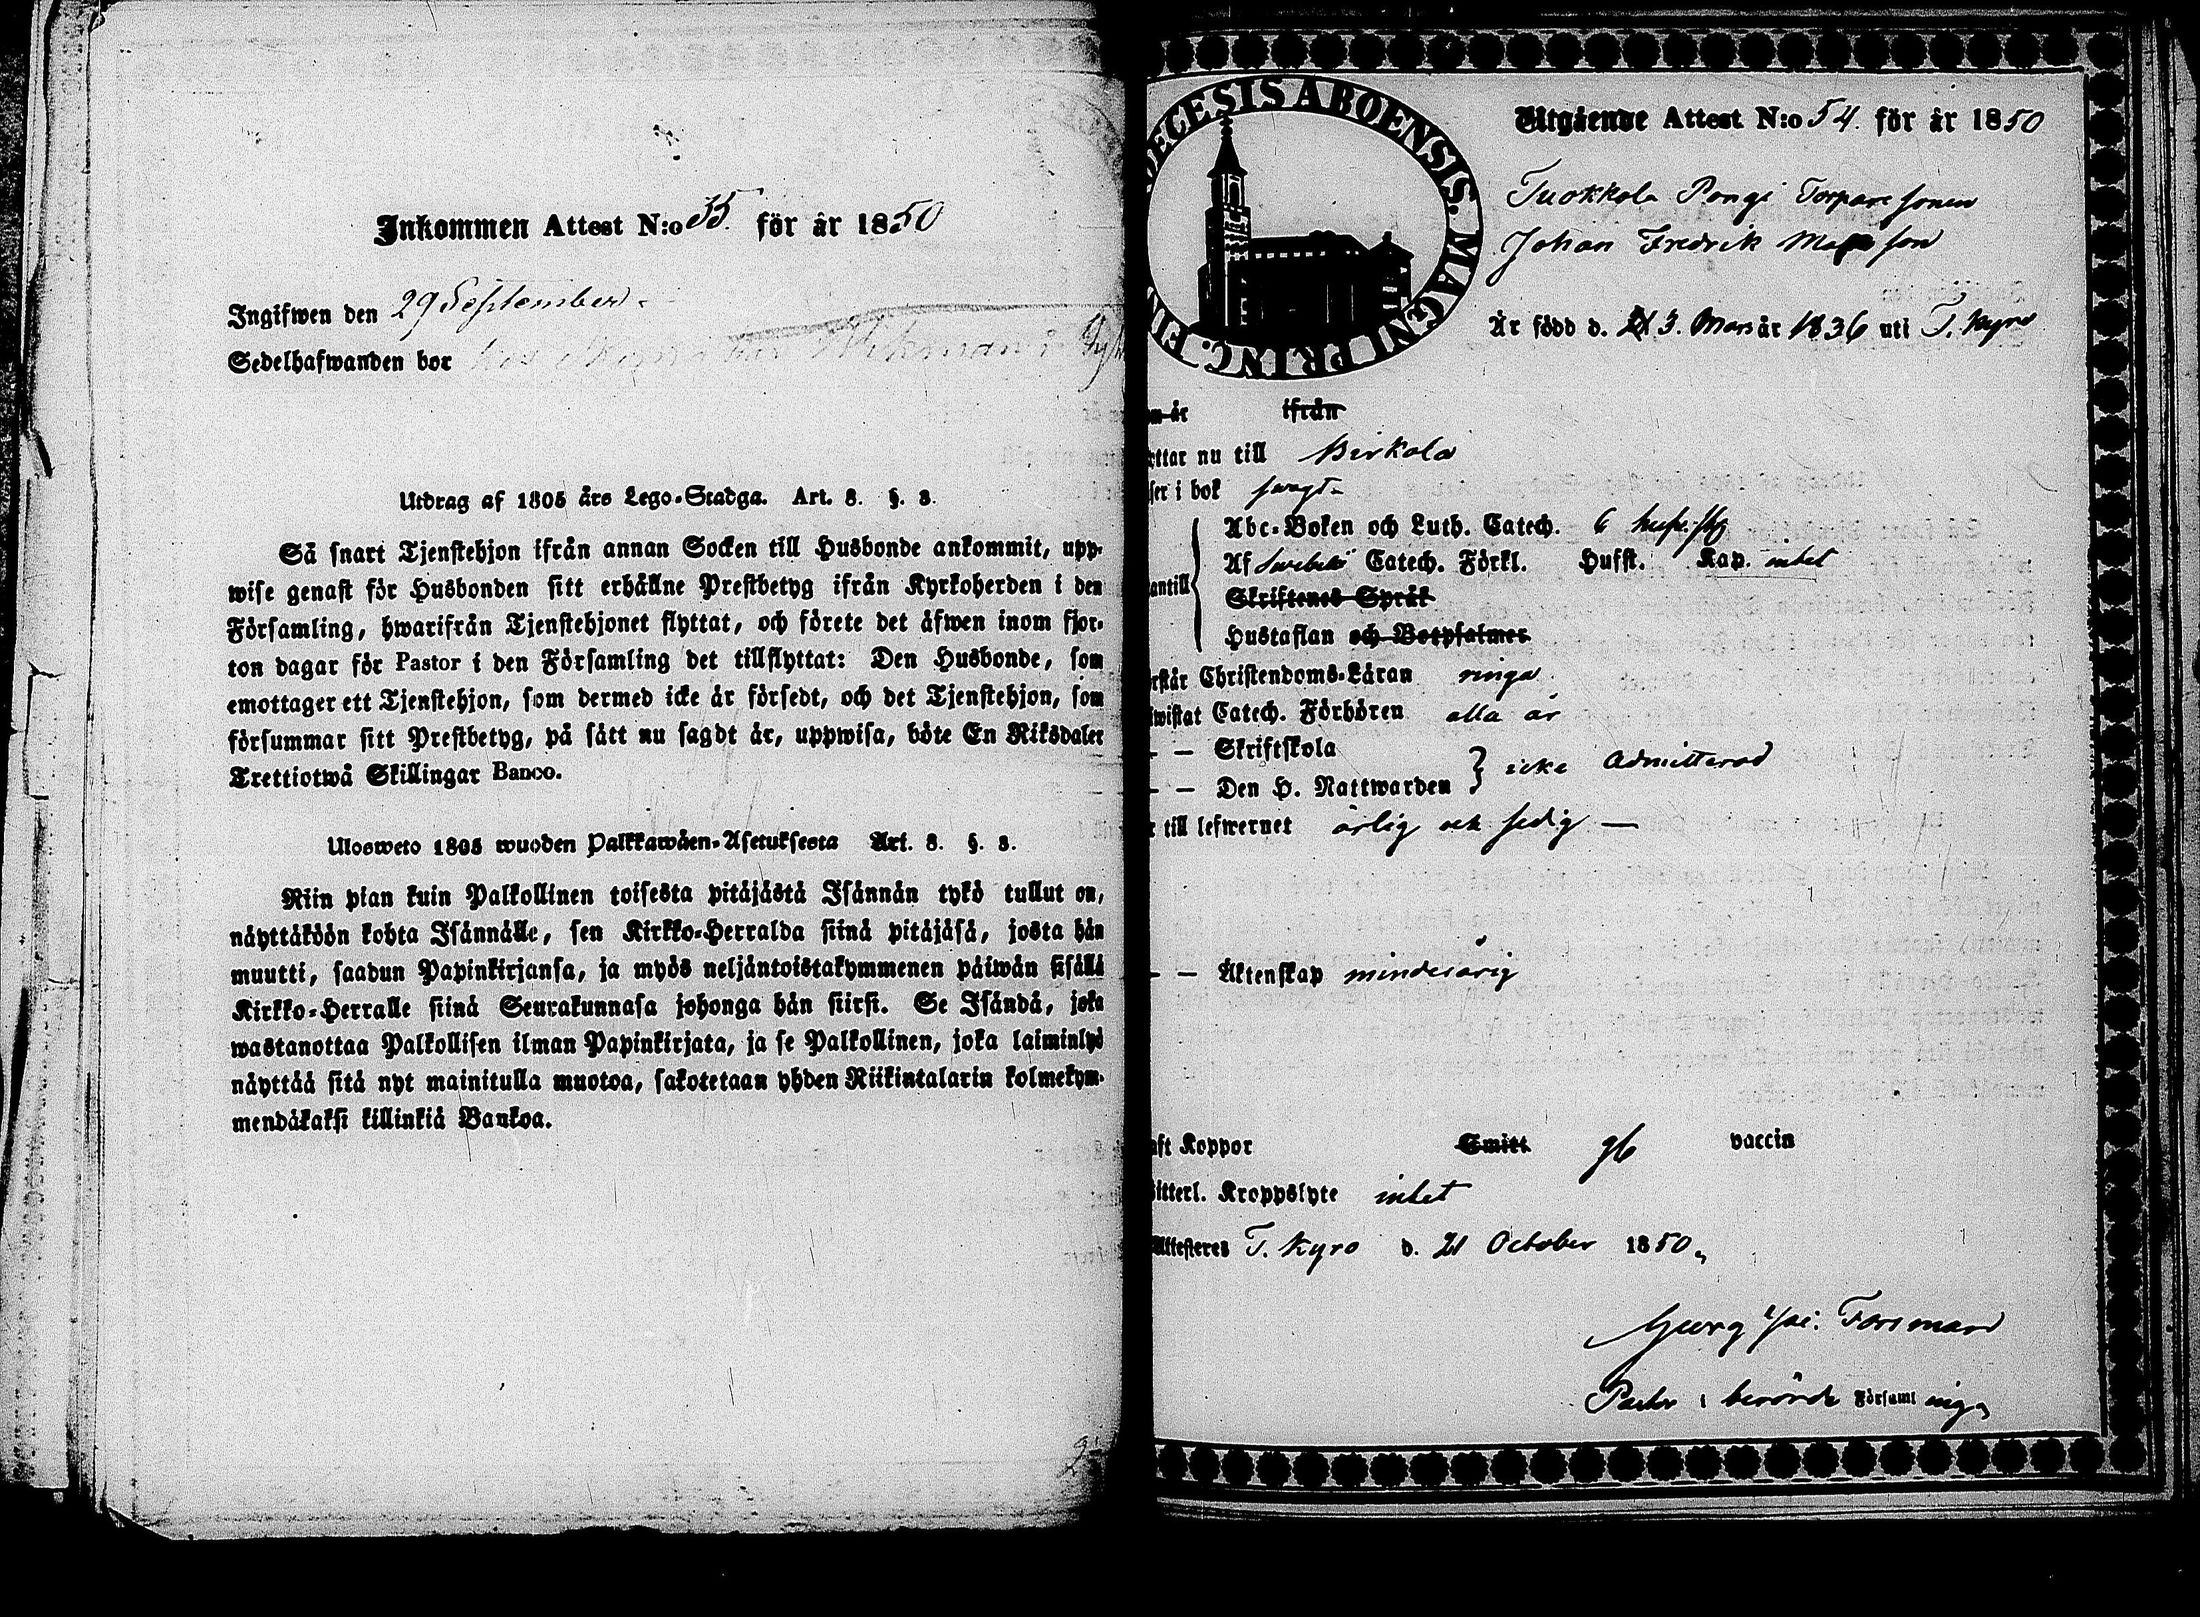 Inkommen Attest N:o 55. för år 1850
Ingifwen den 29 September
Sedelhafwanden bor hos
Utdrag af 1805 års Lego-Stadga. Art. 8. §. 3.
Så snart Tjenstehjon ifrån annan Socken till Husbonde ankommit, upp-
wise genast för Husbonden sitt erhållne Prestbetyg ifrån Kyrkoherden i den
Församling, hwarifrån Tjenstehjonet flyttat, och förete det äfwen inom fjor-
ton dagar för Pastor i den Församling det tillflyttat: Den Husbonde, som
emottager ett Tjenstehjon, som dermed icke är försedt, och det Tjenstehjon, som
försummar sitt Prestbetyg, på sätt nu sagdt är, uppwisa, böte En Riksdaler
Trettiotwå Skillingar Banco.
Ulosweto 1805 wuoden Palkkawäen-Asetuksesta Art. 8. §. 3.
Niin pian kuin Palkollinen toisesta pitäjästä Isännän tykö tullut on,
näyttäköön kohta Isännälle, sen Kirkko-Herralda siinä pitäjäsä, josta hän
muutti, saadun Papinkirjansa, ja myös neljäntoistakymmenen päiwän sisällä
Kirkko-Herralle siinä Seurakunnasa johonga hän siirsi. Se Isändä, joka
wastanottaa Palkollisen ilman Papinkirjata, ja se Palkollinen, joka laiminlyö
näyttää sitä nyt mainitulla muotoa, sakotetaan yhden Riikintalarin kolmekym-
mendäkaksi killinkiä Bankoa.
DECESIS ABOENSIS. MAGNI PRINC. FIN
Utgående Attest N:o 54. för år 1850
Tuokkola Pongi Torpare sonen
Johan Fredrik Matsson
Är född d. 3. Mars år 1836 uti T. Kyro
år ifrån
ttar nu till Birkala
ser i bok swagt
Abc-Boken och Luth. Catech. 6 hufst
Af Swebelii Catech. Förkl. Hufst. Kap. intet
antill
Skriftenes Språk
Hustaflan och Botpsalmer
rstår Christendoms-Läran ringa
wistat Catech. Förhören alla år
— — Skriftskola
— — Den H. Nattwarden } icke admitterad
r till lefwernet ärlig och sedig —
— — Äktenskap minderårig
aft Koppor Smitt gb vaccin
itterl. Kroppslyte intet
Attesteres T. Kyro d. 21 October 1850
Georg Jac. Forsman
Pastor i berörde Församl inga